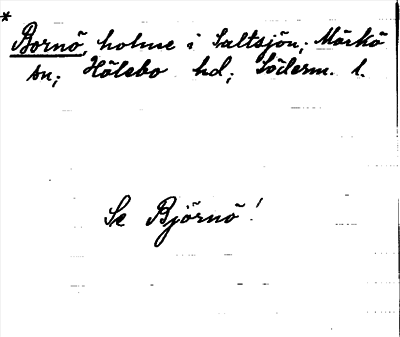 *
Bornö, holme i Saltsjön; Mörkö
sn; Hölebo hd; Söderm. l.
Se Björnö!